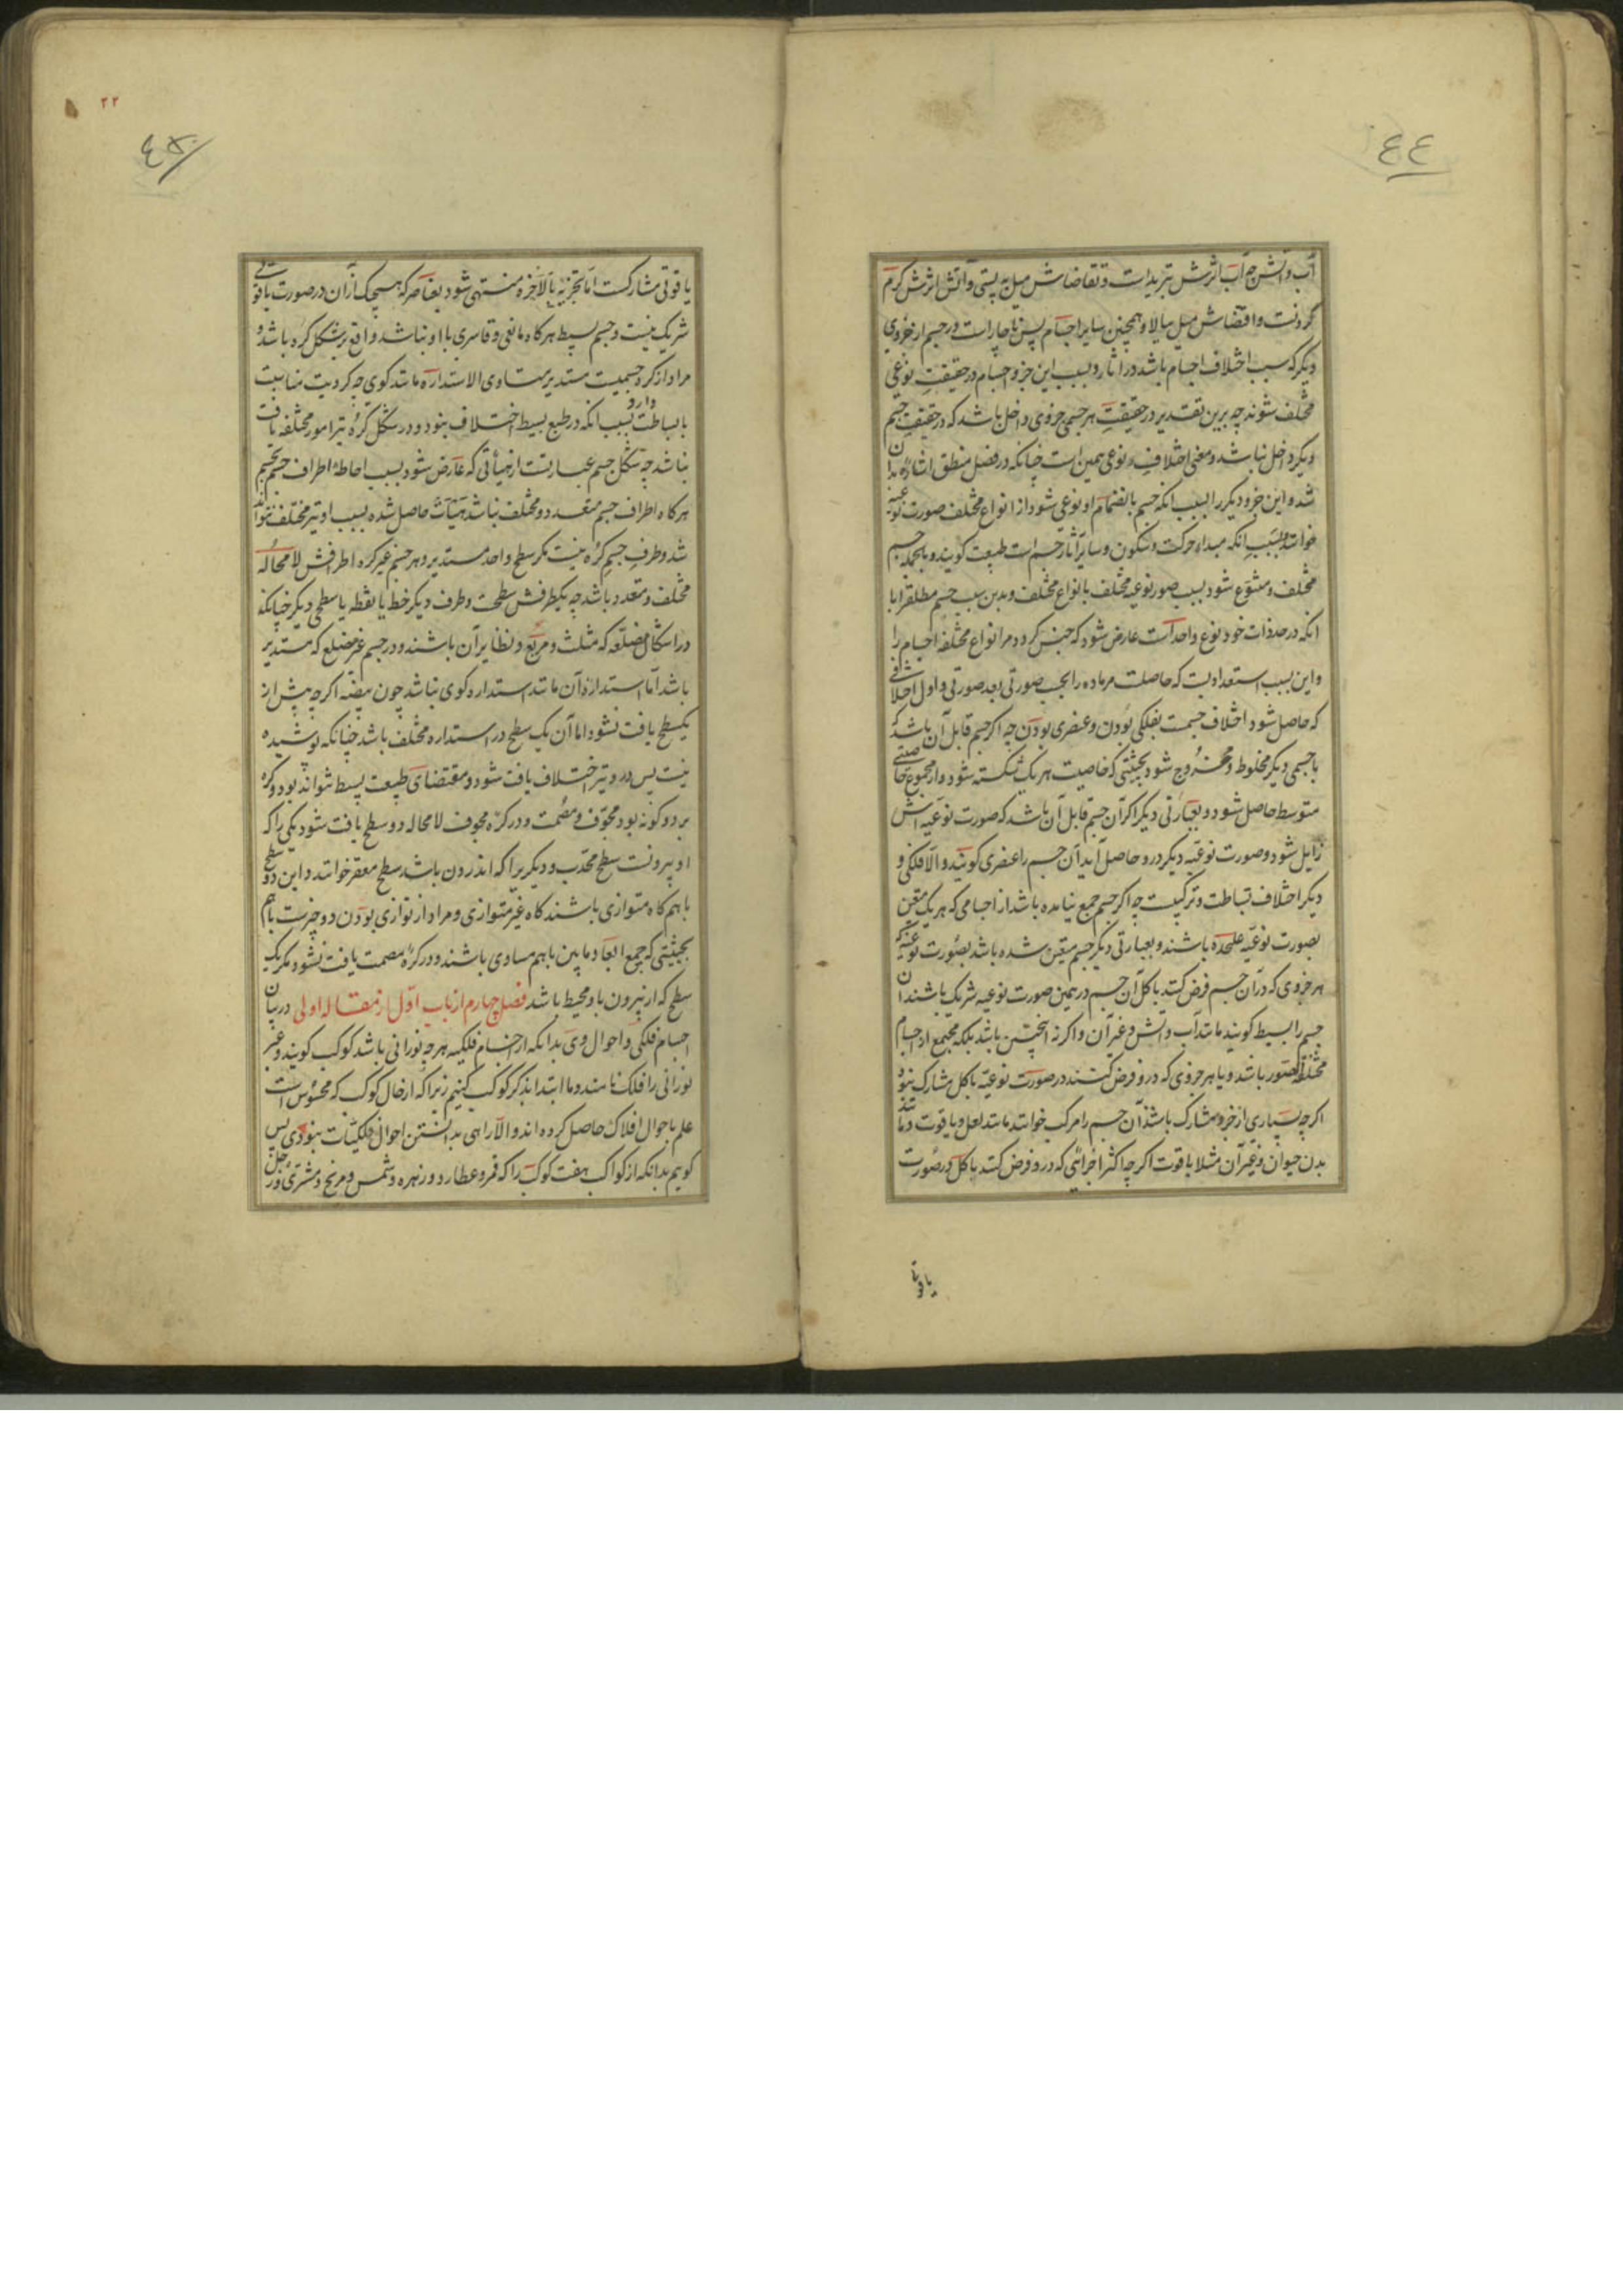 ٤٤
آب و آتش چه آب اثرش تبرید است و تقاضاش میل به پستی و آتش اثرش کرم
کردنست و اقتضاش میل ببالا و همچنین سایر اجسام پس ناچار است در جسم از جزوی
دیکر که سبب اختلاف اجسام باشد در آثار و بسبب این جزو اجسام در حقیقت نوعی
مختلف شوند چه برین تقدیر در حقیقت هر جسمی جزوی داخل باشد که در حقیقت جسم
دیکر داخل نباشد و معنی اختلاف نوعی همین است چنانکه در فصل منطق اشاره بدان
شد و این جزو دیکر را بسبب انکه جسم بانضمام او نوعی شود از انواع مختلف صورت نوعیه
خوانند و بسبب انکه مبداء حرکت و سکون و سایر آثار جسم است طبیعت کویند و بالجمله جسم
مختلف و متنوع شود بسبب صور نوعیه مختلف بانواع مختلف و بدین سبب جسم مطلق را با
انکه در حد ذات خود نوع واحد است عارض شود که جنس کردد مر انواع مختلفه اجسام را
و این بسبب استعدادیست که حاصلست مر ماده را بحسب صورتی بعد صورتی و اول اختلافی
که حاصل شود اختلاف جسمست بفلکی بودن و عنصری بودن چه اکر جسم قابل آن باشد که
با جسمی دیکر مخلوط و ممزوج شود بحیثیتی که خاصیت هر یک شکسته شود و از مجموع خاصیتی
متوسط حاصل شود و بعبارتی دیکر اکر آن جسم قابل آن باشد که صورت نوعیه اش
زایل شود و صورت نوعیه دیکر درو حاصل آید آن جسم را عنصری کویند و الا فلکی و
دیکر اختلاف بساطت و ترکیبست چه اکر جسم جمع نیامده باشد از اجسامی که هر یک متعین
بصورت نوعیه علیحده باشند و بعبارتی دیکر جسم متعین شده باشد بصورت نوعیه که
هر جزوی که در آن جسم فرض کنند با کل آن جسم در همین صورت نوعیه شریک باشند آن
جسم را بسیط کویند مانند آب و آتش و غیر آن و اکر نه انچنین باشد بلکه مجتمع از اجسام
مختلفة الصور باشد و یا هر جزوی که درو فرض کنند در صورت نوعیه با کل مشارک نبود
اکر چه بسیاری از جزو مشارک باشد آن جسم را مرکب خوانند مانند لعل و یاقوت و مانند
بدن حیوان و غیر آن مثلا یاقوت اکر چه اکثر اجزائی که درو فرض کنند با کل در صورت
یاقوتی
۲۲
٤۵
یاقوتی مشارکست اما تجزیه بالاخره منتهی شود بعناصر که هیچیک از آن در صورت یاقوتی
شریک نیست و جسم بسیط هر کاه مانعی و قاسری با او نباشد واقع بر شکل کره باشد و
مراد از کره جسمیست مستدیر متساوی الاستداره مانند کوی چه کرویت مناسبت
با بساطت دارد بسبب انکه در طبع بسیط اختلاف نبود و در شکل کره نیز امور مختلفه یافت
نباشد چه شکل جسم عبارتست از هیأتی که عارض شود بسبب احاطه اطراف جسم بجسم
هر کاه اطراف جسم متعدد و مختلف نباشد هیأت حاصل شده بسبب او نیز مختلف نتواند
شد و طرف جسم کره نیست مکر سطح واحد مستدیر و هر جسم غیر کره اطرافش لا محاله
مختلف و متعدد باشد چه یکطرفش سطحست و طرف دیکر خط یا نقطه یا سطحی دیکر چنانکه
در اشکال مضلعه که مثلث و مربع و نظایر آن باشند و در جسم غیر مضلع که مستدیر
باشد اما استداره آن مانند استداره کوی نباشد چون بیضه اکر چه بیش از
یکسطح یافت نشود اما آن یک سطح در استداره مختلف باشد چنانکه پوشیده
نیست پس درو نیز اختلاف یافت شود و مقتضای طبیعت بسیط نتواند بود و کره
بر دو کونه بود مجوف و مصمت و در کره مجوف لا محاله دو سطح یافت شود یکی را که
او بیرونست سطح محدب و دیکریرا که اندرون باشد سطح مقعر خوانند و این دو سطح
با هم کاه متوازی باشند کاه غیر متوازی و مراد از توازی بودن دو چیزست با هم
بحیثیتی که جمیع ابعاد مابین با هم مساوی باشند و در کره مصمت یافت نشود مکر یک
سطح که از بیرون باو محیط باشد فصل چهارم از باب اول از مقاله اولی در بیان
اجسام فلکی و احوال وی بدانکه از اجسام فلکیه هر چه نورانی باشد کوکب کویند و غیر
نورانی را فلک نامند و ما ابتدا بذکر کوکب کنیم زیرا که از حال کوکب که محسوس است
علم باحوال افلاک حاصل کرده اند و الا راهی بدانستن احوال فلکیات نبودی پس
کویم بدانکه از کواکب هفت کوکب را که قمر و عطارد و زهره و شمس و مریخ و مشتری و زحل